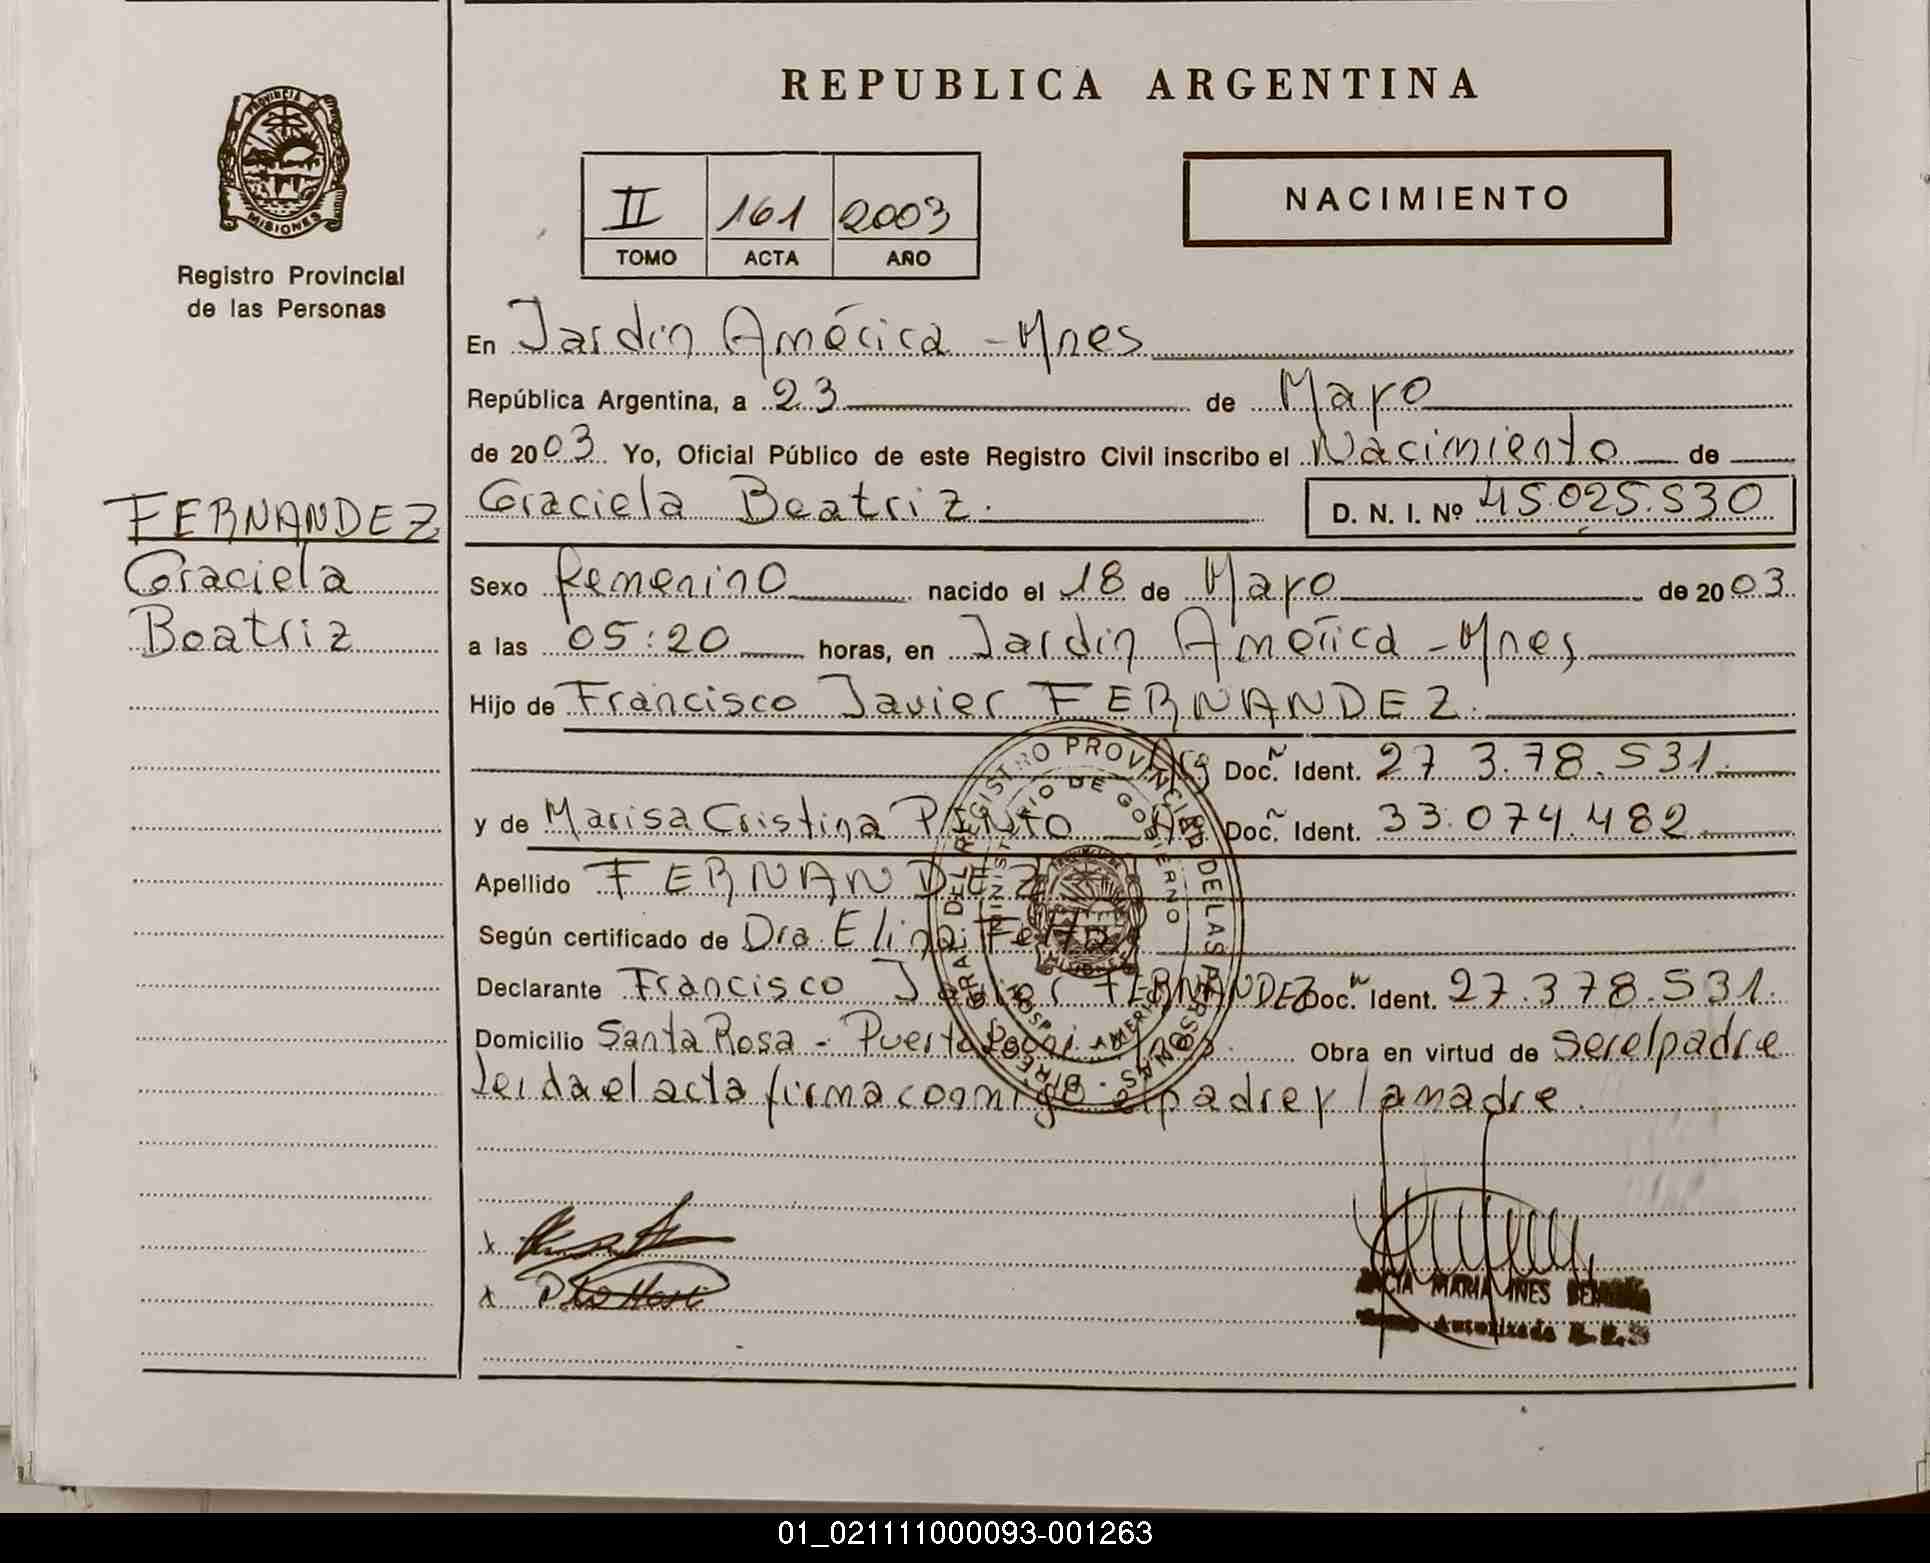 REPUBLICA ARGENTINA
PROVINCIA DE
MISIONES
Registro Provincial
de las Personas
II 161 2003
TOMO ACTA AÑO
NACIMIENTO
En Jardín América - Mnes
República Argentina, a 23 de Mayo
de 2003 Yo, Oficial Público de este Registro Civil inscribo el Nacimiento de
FERNANDEZ
Graciela
Beatriz
Graciela Beatriz. D. N. I. Nº 45.025.530
Sexo femenino nacido el 18 de Mayo de 2003
a las 05:20 horas, en Jardín América - Mnes
Hijo de Francisco Javier FERNANDEZ.
Arg Doc. Ident. 27.378.531.
y de Marisa Cristina Doc. Ident. 33.074.482
Apellido FERNANDEZ
Según certificado de Dra. Elina
Declarante Francisco Javier FERNANDEZ Doc. Ident. 27.378.531.
Domicilio Santa Rosa - Puerto Mnes. Obra en virtud de ser el padre
Leida el acta firma conmigo el padre y la madre.
REGISTRO PROVINCIAL DE LAS PERSONAS
MINISTERIO DE GOBIERNO
MARIA INES
Autorizada
01_021111000093-001263